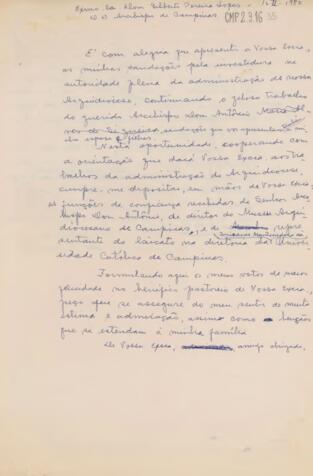 Exmo. Sr. Dom Gilberto Pereira Lopes - 16-II-1980
D.D. Arcebispo de Campinas
CMP 2.9.16 35
É com alegria que apresento a Vossa Excia,
as minhas saudações pela investidura na
autoridade plena da administração de nossa
Arquidiocese, continuando o zeloso trabalho
do querido Arcebispo Dom Antônio Maria Al-
ves de Siqueira, saudações que vão apresentadas mi-
nha esposa e filhos.
Nesta oportunidade, cooperando com
a orientação que dará Vossa Excia, aos tra-
balhos da administração da Arquidiocese,
cumpre-me depositar, em mãos de Vossa Excia,
as funções de confiança recebidas do Senhor Arce-
bispo Dom Antônio, de diretor do Museu Arqui-
diocesano de Campinas, e de repre-
sentante do laicato na diretoria da Univer-
sidade Católica de Campinas.
Formulando aqui os meus votos de maior
felicidade no benefício pastoral de Vossa Excia,
peço que se assegure do meu sentir de muita
estima e admiração, assim como bençãos
que se estendam à minha família
De Vossa Excia, amigo obrigado,